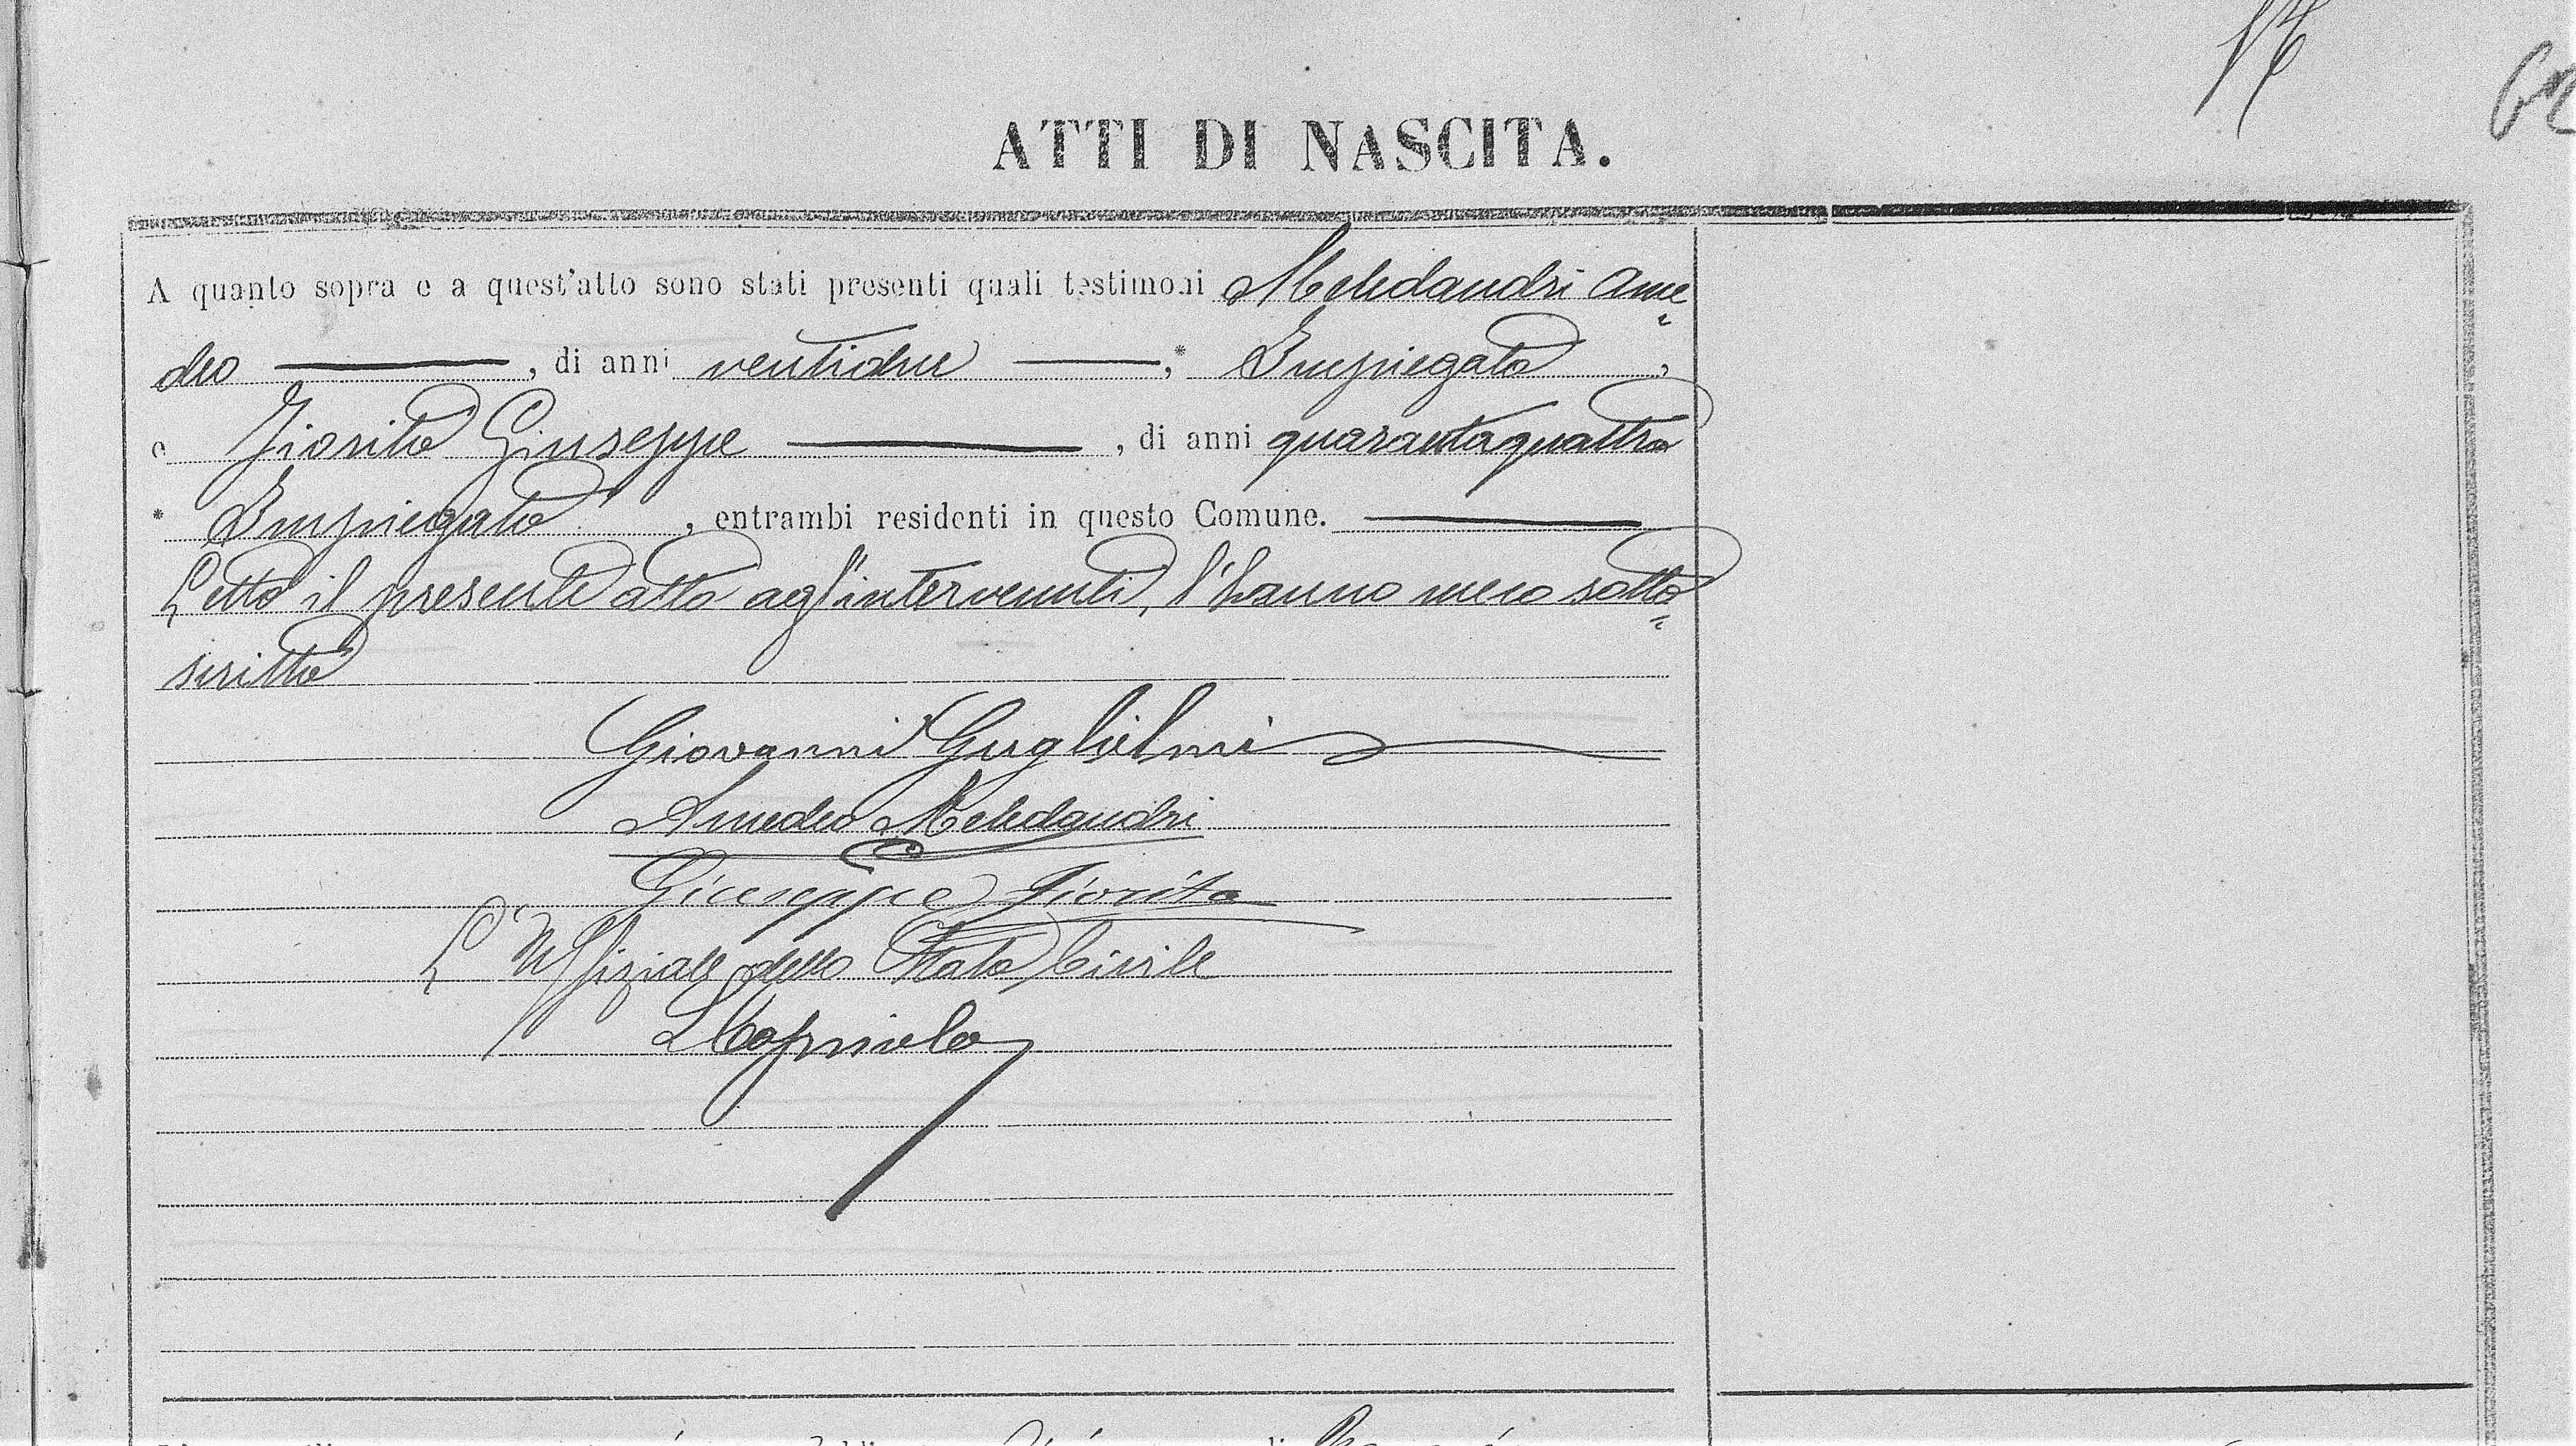 ATTI DI NASCITA.
A quanto sopra e a quest'atto sono stati presenti quali testimoni Meledandri Ame
deo, di anni ventidue; * Impiegato,
e Fiorito Giuseppe, di anni quarantaquattro
* Impiegato, entrambi residenti in questo Comune.
Letto il presente atto agl'intervenuti, l'hanno meco sotto
scritto
Giovanni Guglielmi
Amedeo Meledandri
Giuseppe Fiorito
L'Uffiziale dello Stato Civile